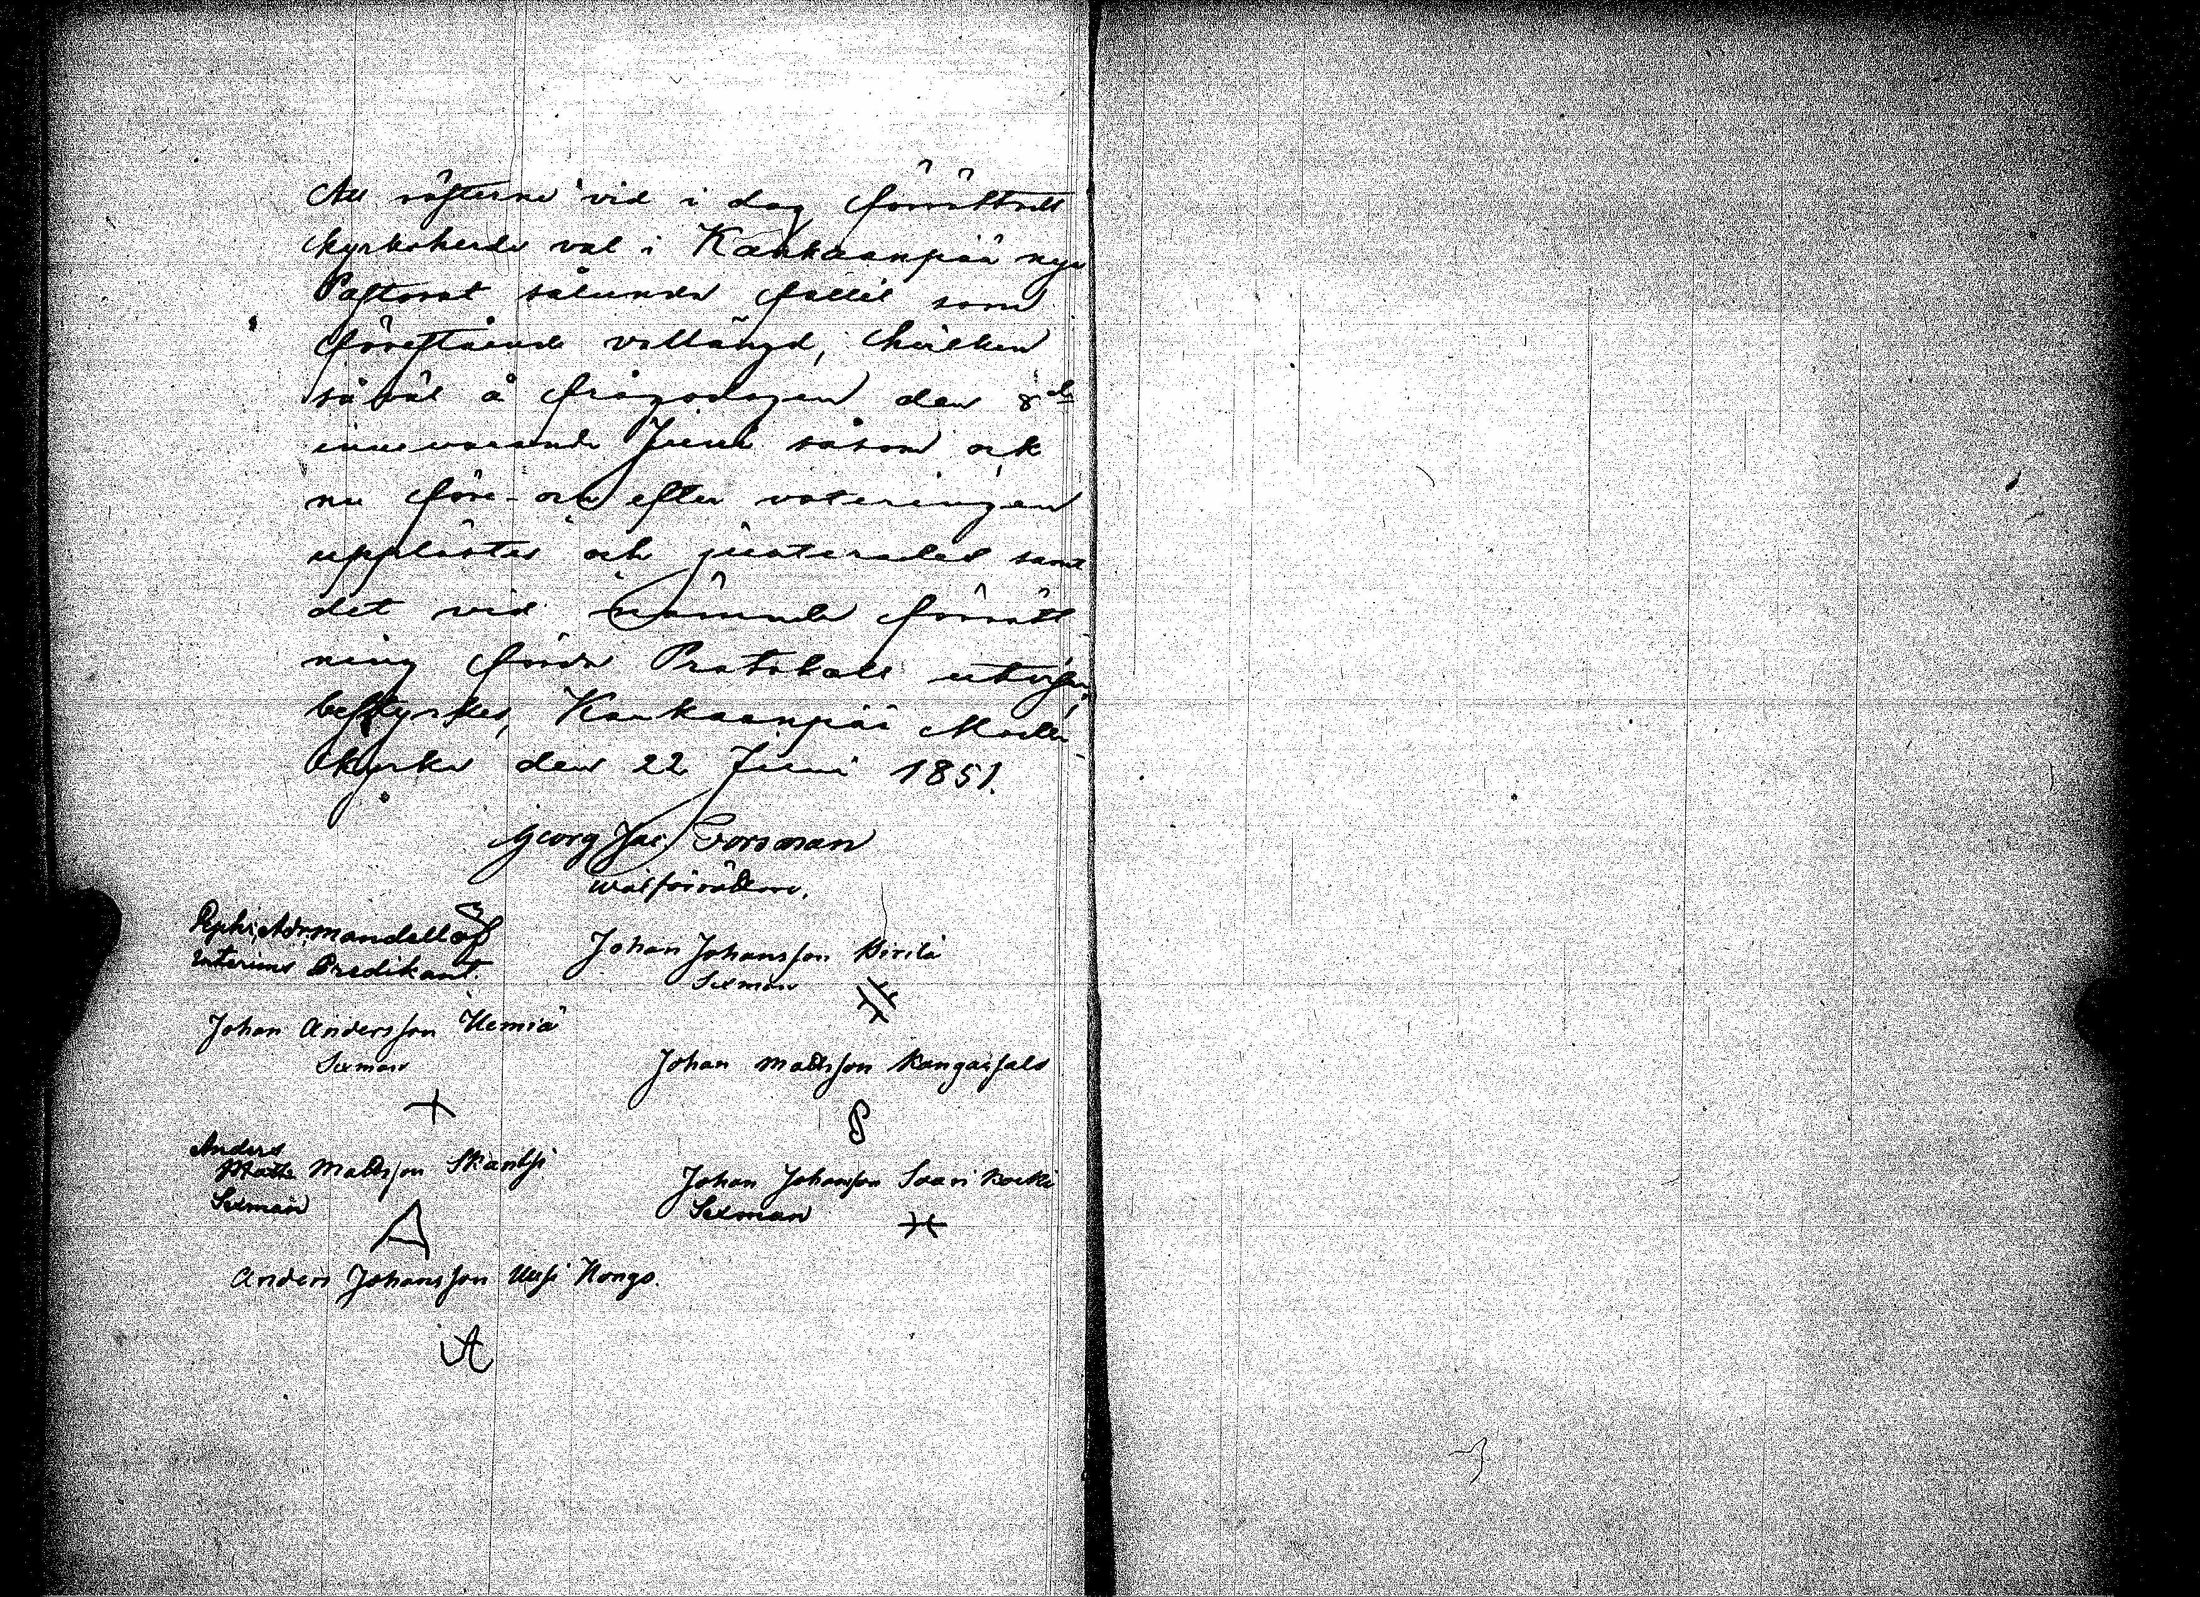 Att rösterne vid i dag förrättadt
kyrkoherde val i Kankaanpää nya
Pastorat sålunda fallit som
förestående vallängd, hvilken
såväl å frågodagen den 8de
innevarande Juni såsom ock
nu före- och efter voteringen
upplästes och justerades samt
det vid nämnde förrätt-
ning förda Protokoll utvisar,
bestyrkes, Kankaanpää Moder-
kyrka den 22 Juni 1851.
Georg Jac. Forsman
Valförrättare.
Mandellöf
Interims Predikant.
Johan Johansson Pirilä
Sexman
Johan Andersson Hemiä
Sexman
Johan Mattsson Kangaisalo
Anders
Matts Mattsson Skantsi
Sexman
Johan Johansson Saarikoski
Sexman
Anders Johansson Uusi Hongo.